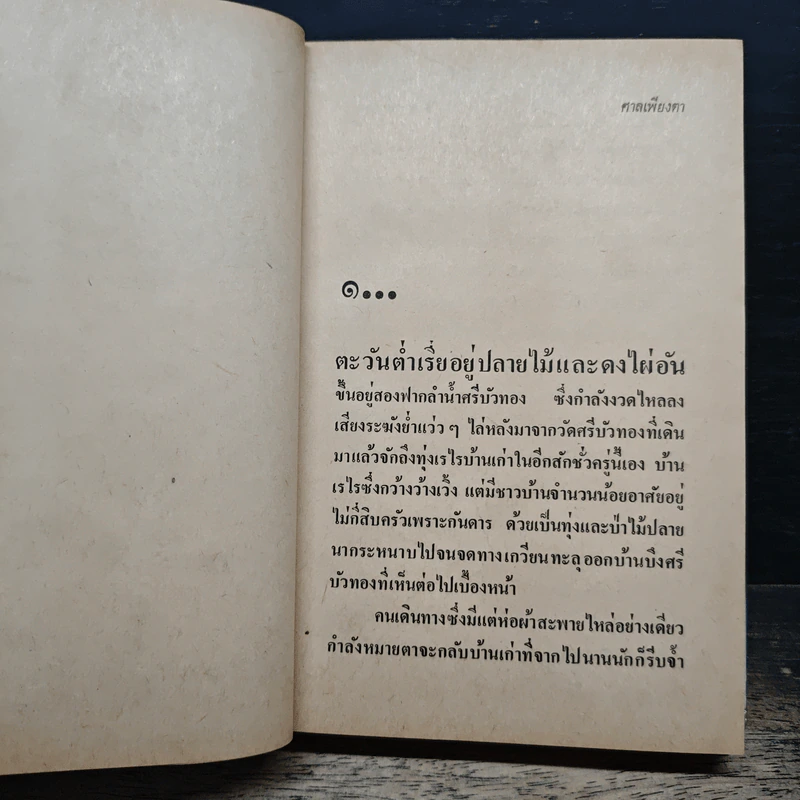 ศาลเพียงตา
๑...
ตะวันต่ำเรี่ยอยู่ปลายไม้และดงไผ่อัน
ขึ้นอยู่สองฟากลำน้ำศรีบัวทอง ซึ่งกำลังงวดไหลลง
เสียงระฆังย่ำแว่ว ๆ ไล่หลังมาจากวัดศรีบัวทองที่เดิน
มาแล้วจักถึงทุ่งเรไรบ้านเก่าในอีกสักชั่วครู่นี้เอง บ้าน
เรไรซึ่งกว้างว้างเวิ้ง แต่มีชาวบ้านจำนวนน้อยอาศัยอยู่
ไม่กี่สิบครัวเพราะกันดาร ด้วยเป็นทุ่งและป่าไม้ปลาย
นากระหนาบไปจนจดทางเกวียนทะลุออกบ้านบึงศรี
บัวทองที่เห็นต่อไปเบื้องหน้า
คนเดินทางซึ่งมีแต่ห่อผ้าสะพายไหล่อย่างเดียว
กำลังหมายตาจะกลับบ้านเก่าที่จากไปนานนักก็รีบจ้ำ